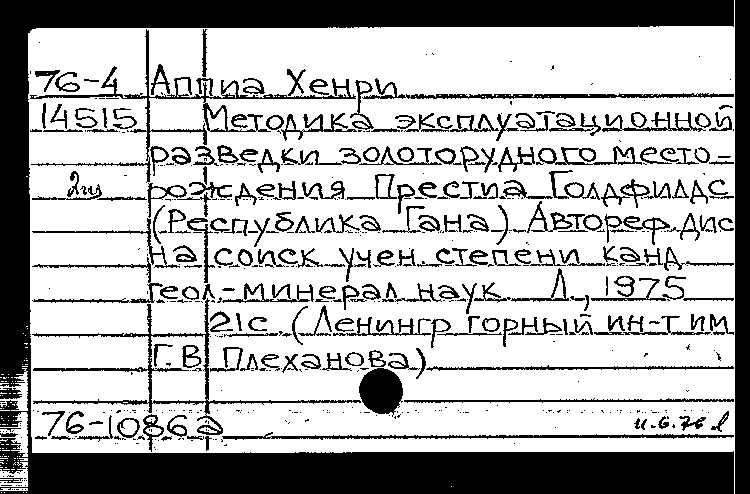 76-4 Аппиа Хенри
14515 Методика эксплуатационной
разведки золоторудного место-
2 рождения Престиа Голдфилдс
(Республика Гана) Автореф. дис
на соиск учен. степени канд.
геол.-минерал наук Л., 1975
21с. (Ленингр горный ин-т им
Г.В Плеханова)
76-10862